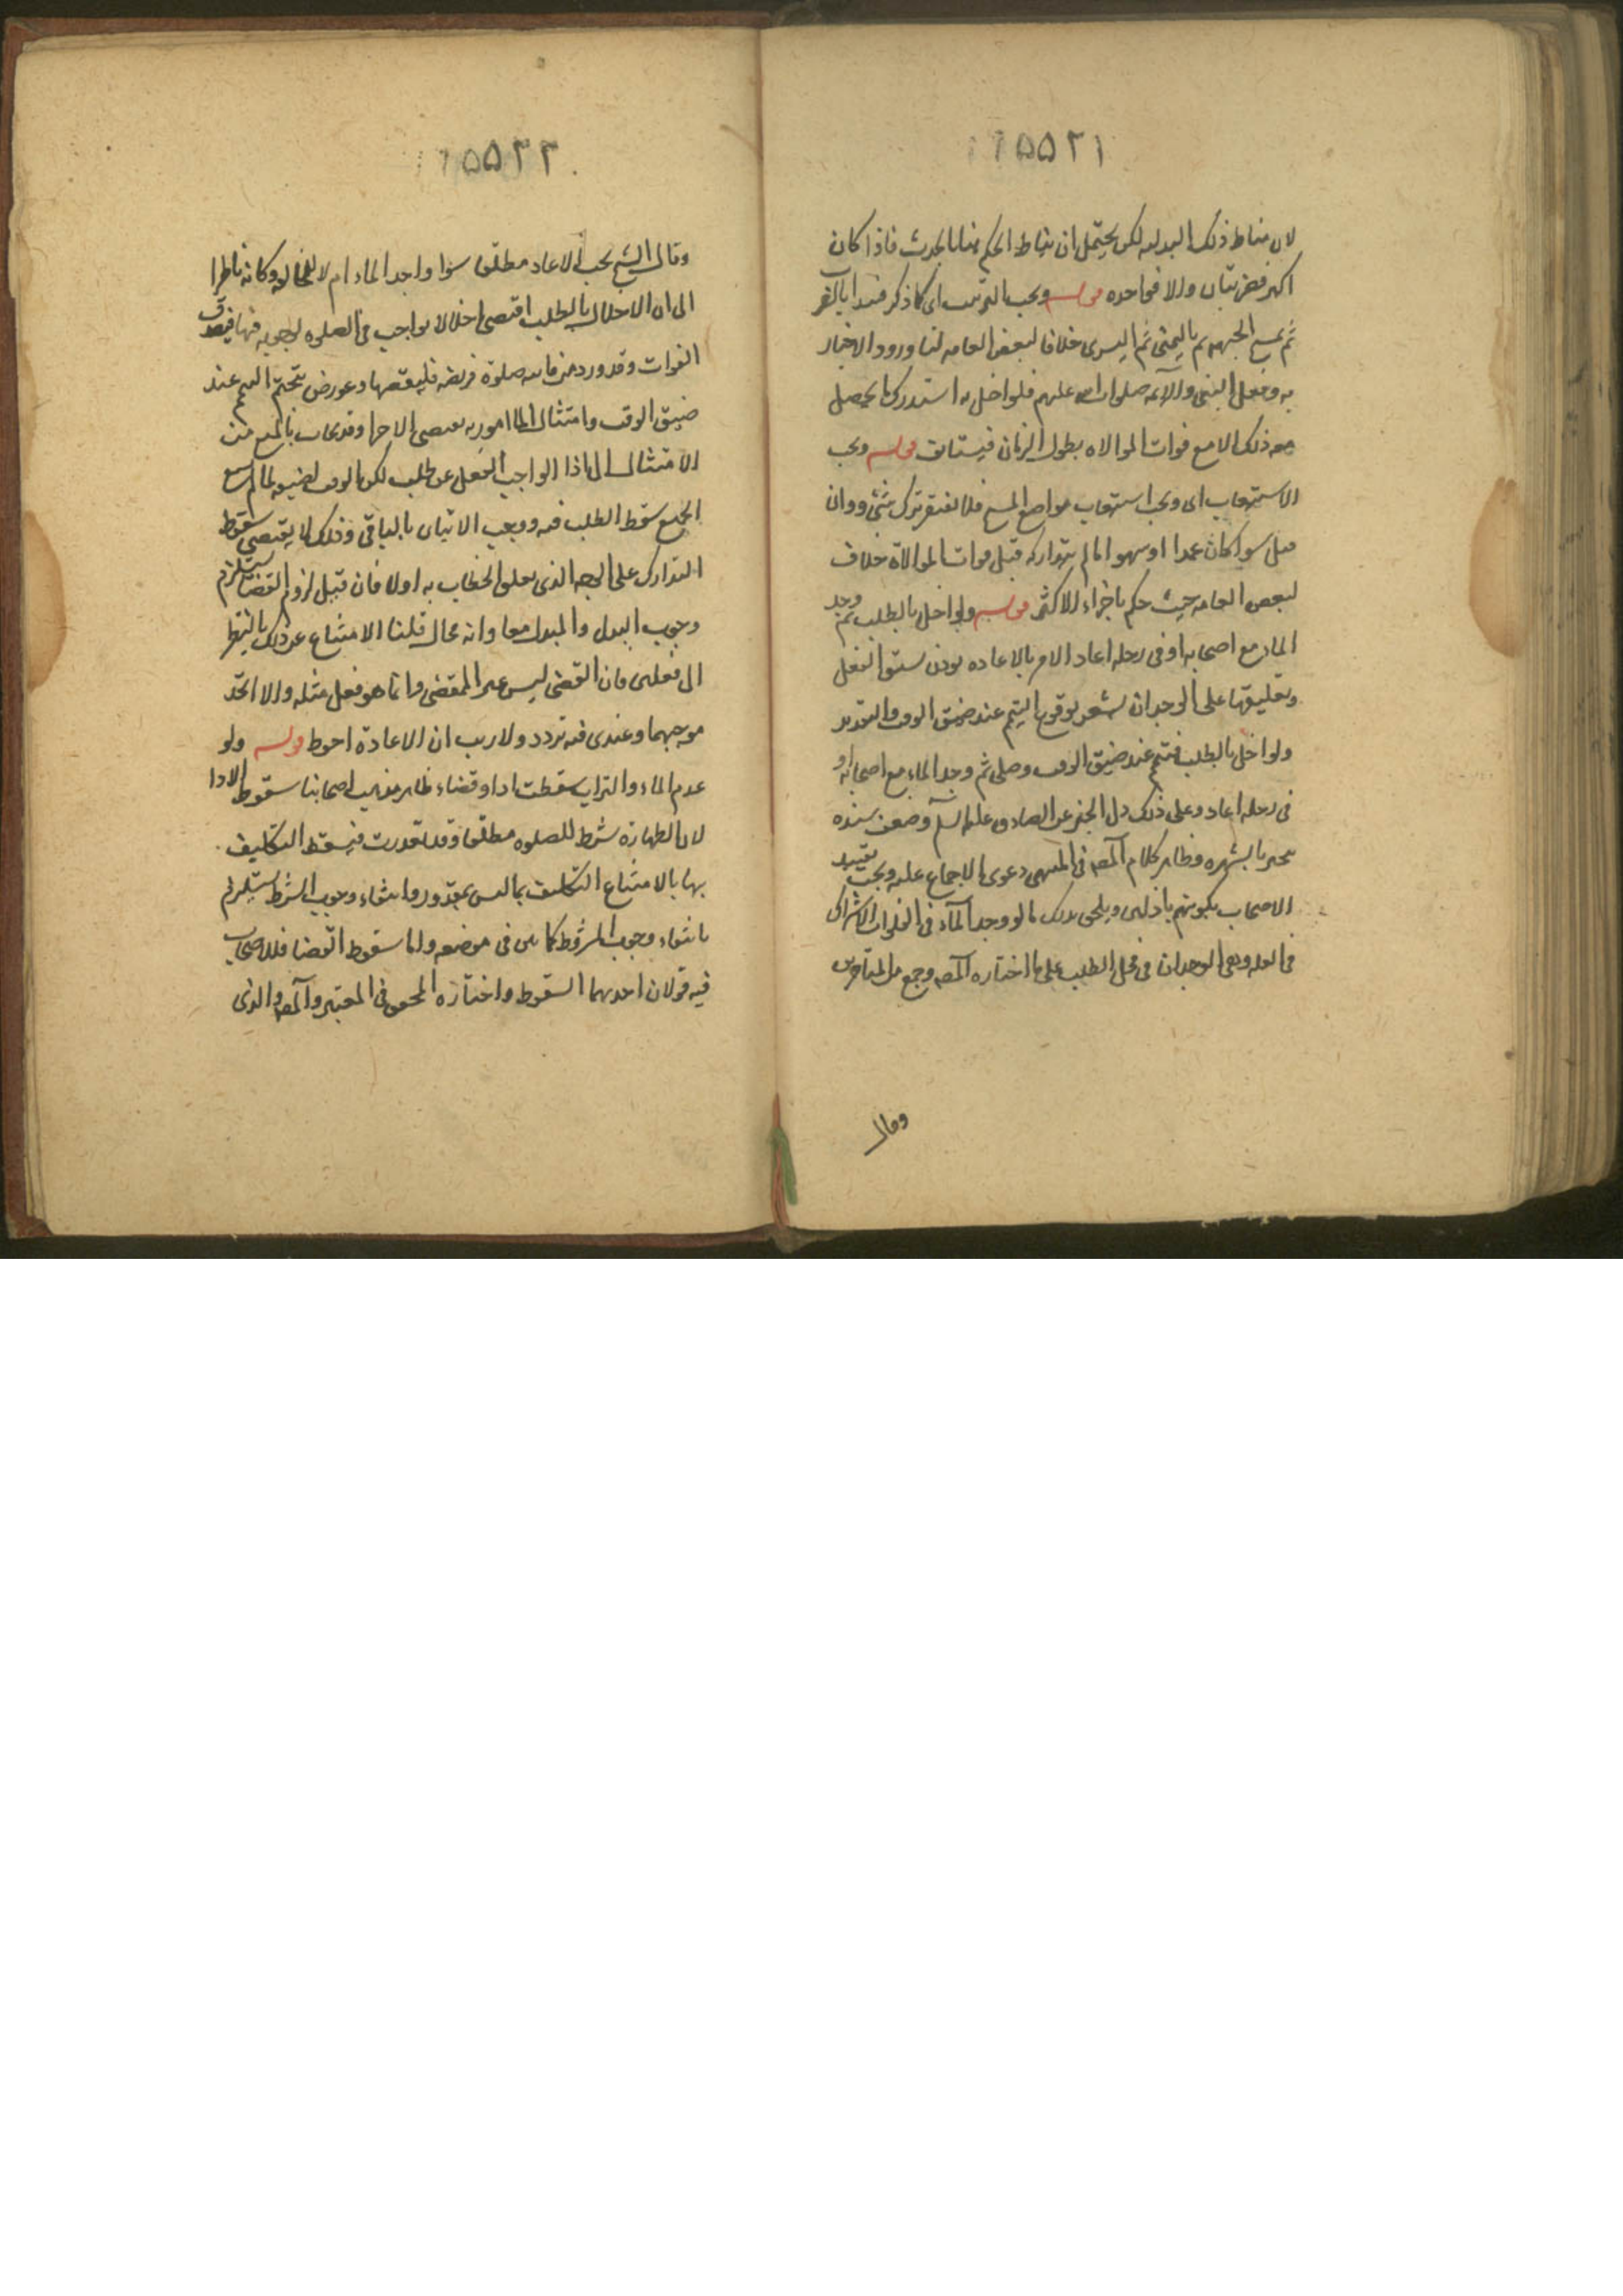 ۱۲۵۵۲۱
لان مناط ذلك البدليه لكن يحتمل ان يناط الحكم هنا بالحدث فاذا كان
اكبر فضربتان والا فواحده قوله ويجب الترتيب اى كما ذكر فيبدا بالضرب
ثم يمسح الجبهه ثم باليمنى ثم اليسرى خلافا لبعض العامه لنا ورود الاخبار
به وفعل النبى والايمه صلوات الله عليهم فلو اخل به استدرك ما يحصل
معه ذلك الا مع فوات الموالاه بطول الزمان فيستانف قوله ويجب
الاستيعاب اى ويجب استيعاب مواضع المسح فلا يغتفر ترك شئ و وان
قل سوا كان عمدا او سهوا ما لم يتداركه قبل فوات الموالاة خلاف
لبعض العامه حيث حكم باجزاء الاكثر قوله ولو اخل بالطلب ثم وجد
الماء مع اصحابه او فى رحله اعاد الامر بالاعاده يوذن بسبق الفعل
وتعليقها على الوجدان يشعر بوقوع التيمم عند ضيق الوقت والتقدير
ولو اخل بالطلب فتيمم عند ضيق الوقت وصلى ثم وجد الماء مع اصحابه او
فى رحله اعاد وعلى ذلك دل الخبر عن الصادق عليه السلم وضعف سنده
ينجبر بالشهره وظاهر كلام المصه فى المنتهى دعوى الاجماع عليه ويجب تقييد
الاصحاب بكونهم باذلين ويلحق بذلك ما لو وجد الماء فى الفلوات لاشتراك
فى العله وهى الوجدان فى محل الطلب على ما اختاره المصه وجمع من المتاخرين
وقال
۱۲۵۵۲۲
وقال الشيخ يجب الاعاد مطلقا سوا واجد الماء ام لا وكانه ناظرا
الى ان الاخلال بالطلب اقتضى اخلالا بواجب فى الصلوه لوجوبه فيها فيصدق
الفوات وقد ورد من فاتته صلوة فريضه فليقضها وعورض بتحتم التيمم عند
ضيق الوقت وامتثال المامور به يقتضى الاجزا وقد يجاب بالمنع من
الامتثال اذا الواجب الفعل عن طلب لكن الوقت لضيقه لما لم يسع
الجميع سقط الطلب فيه ووجب الاتيان بالباقى وذلك لا يقتضى سقوط
التدارك على الوجه الذى تعلق الخطاب به اولا فان قيل لزوم القضا يستلزم
وجوب البدل والمبدل معا وانه محال قلنا الامتناع عن ذلك بالنظر
الى فعلين فان القضى ليس عين المقضى وانما هو فعل مثله والا اتحد
موجبهما وعندى فيه تردد ولا ريب ان الاعادة احوط قوله ولو
عدم الماء والتراب سقطت ادا وقضاء ظاهر مذهب اصحابنا سقوط الادا
لان الطهارة شرط للصلوه مطلقا وقد تعذرت فيسقط التكليف
بها بالامتناع التكليف بما ليس بمقدور وانتفاء وجوب الشرط يستلزم
بانتفاء وجوب المشروط كما بين فى موضعه واما سقوط القضا فللاصحاب
فيه قولان احدهما السقوط واختاره المحقق فى المعتبر والمصه والذى